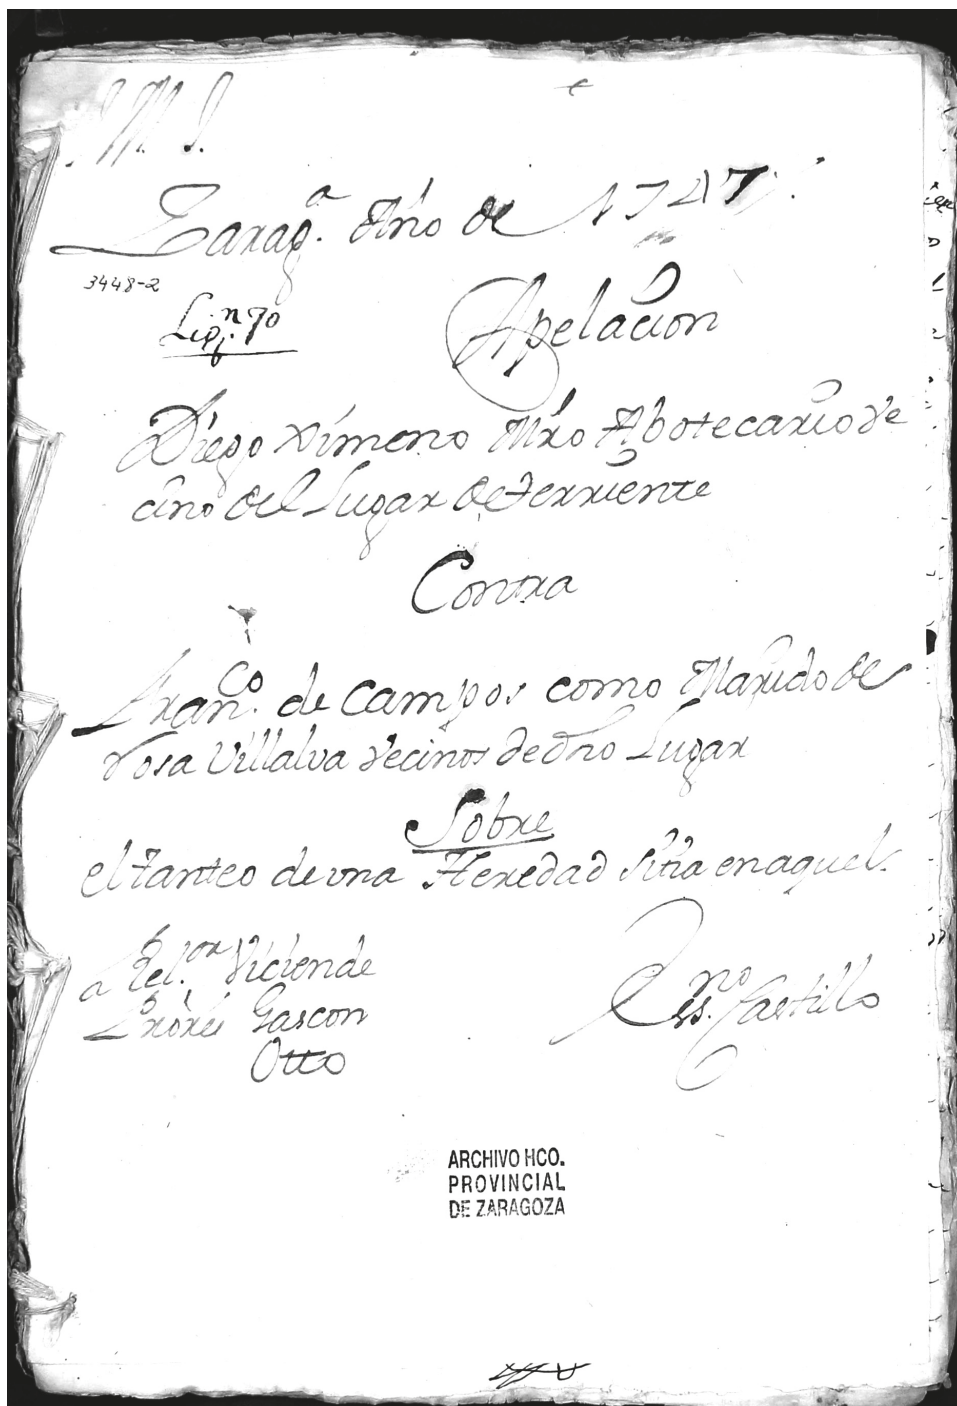 J. M. J.
Zarag.ª Año de 1747.
3448-2
Leg.n 70
Apelacion
Diego Ximeno Mro Abotecario Ve
cino del Lugar de Terriente
Contra
Fran.co de Campos como Marido de
Rosa Villalva Vecinos de dho Lugar
Sobre
el tanteo de vna Heredad sitia en aquel.
Rel.or Viciende
Prores Gascon
Otto
Ess.no Castillo
ARCHIVO HCO.
PROVINCIAL
DE ZARAGOZA